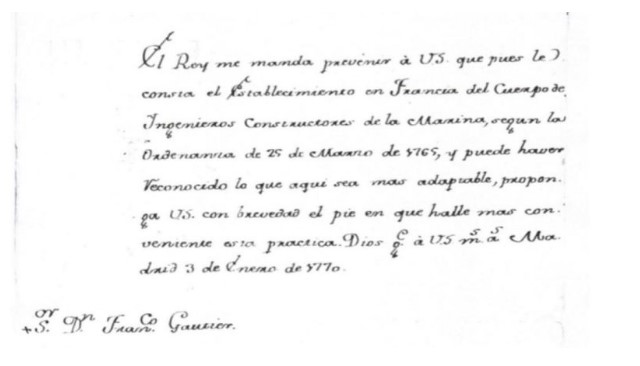 El Rey me manda prevenir à VS. que pues le
consta el Establecimiento en Francia del Cuerpo de
Ingenieros Constructores de la Marina, segun la
Ordenanza de 25 de Marzo de 1765, y puede haver
reconocido lo que aqui sea mas adaptable, propon-
ga VS. con brevedad el pie en que halle mas con-
veniente esta practica. Dios g.e à VS m.s a.s Ma-
drid 3 de Enero de 1770.
+ S.or D.n Fran.co Gautier.